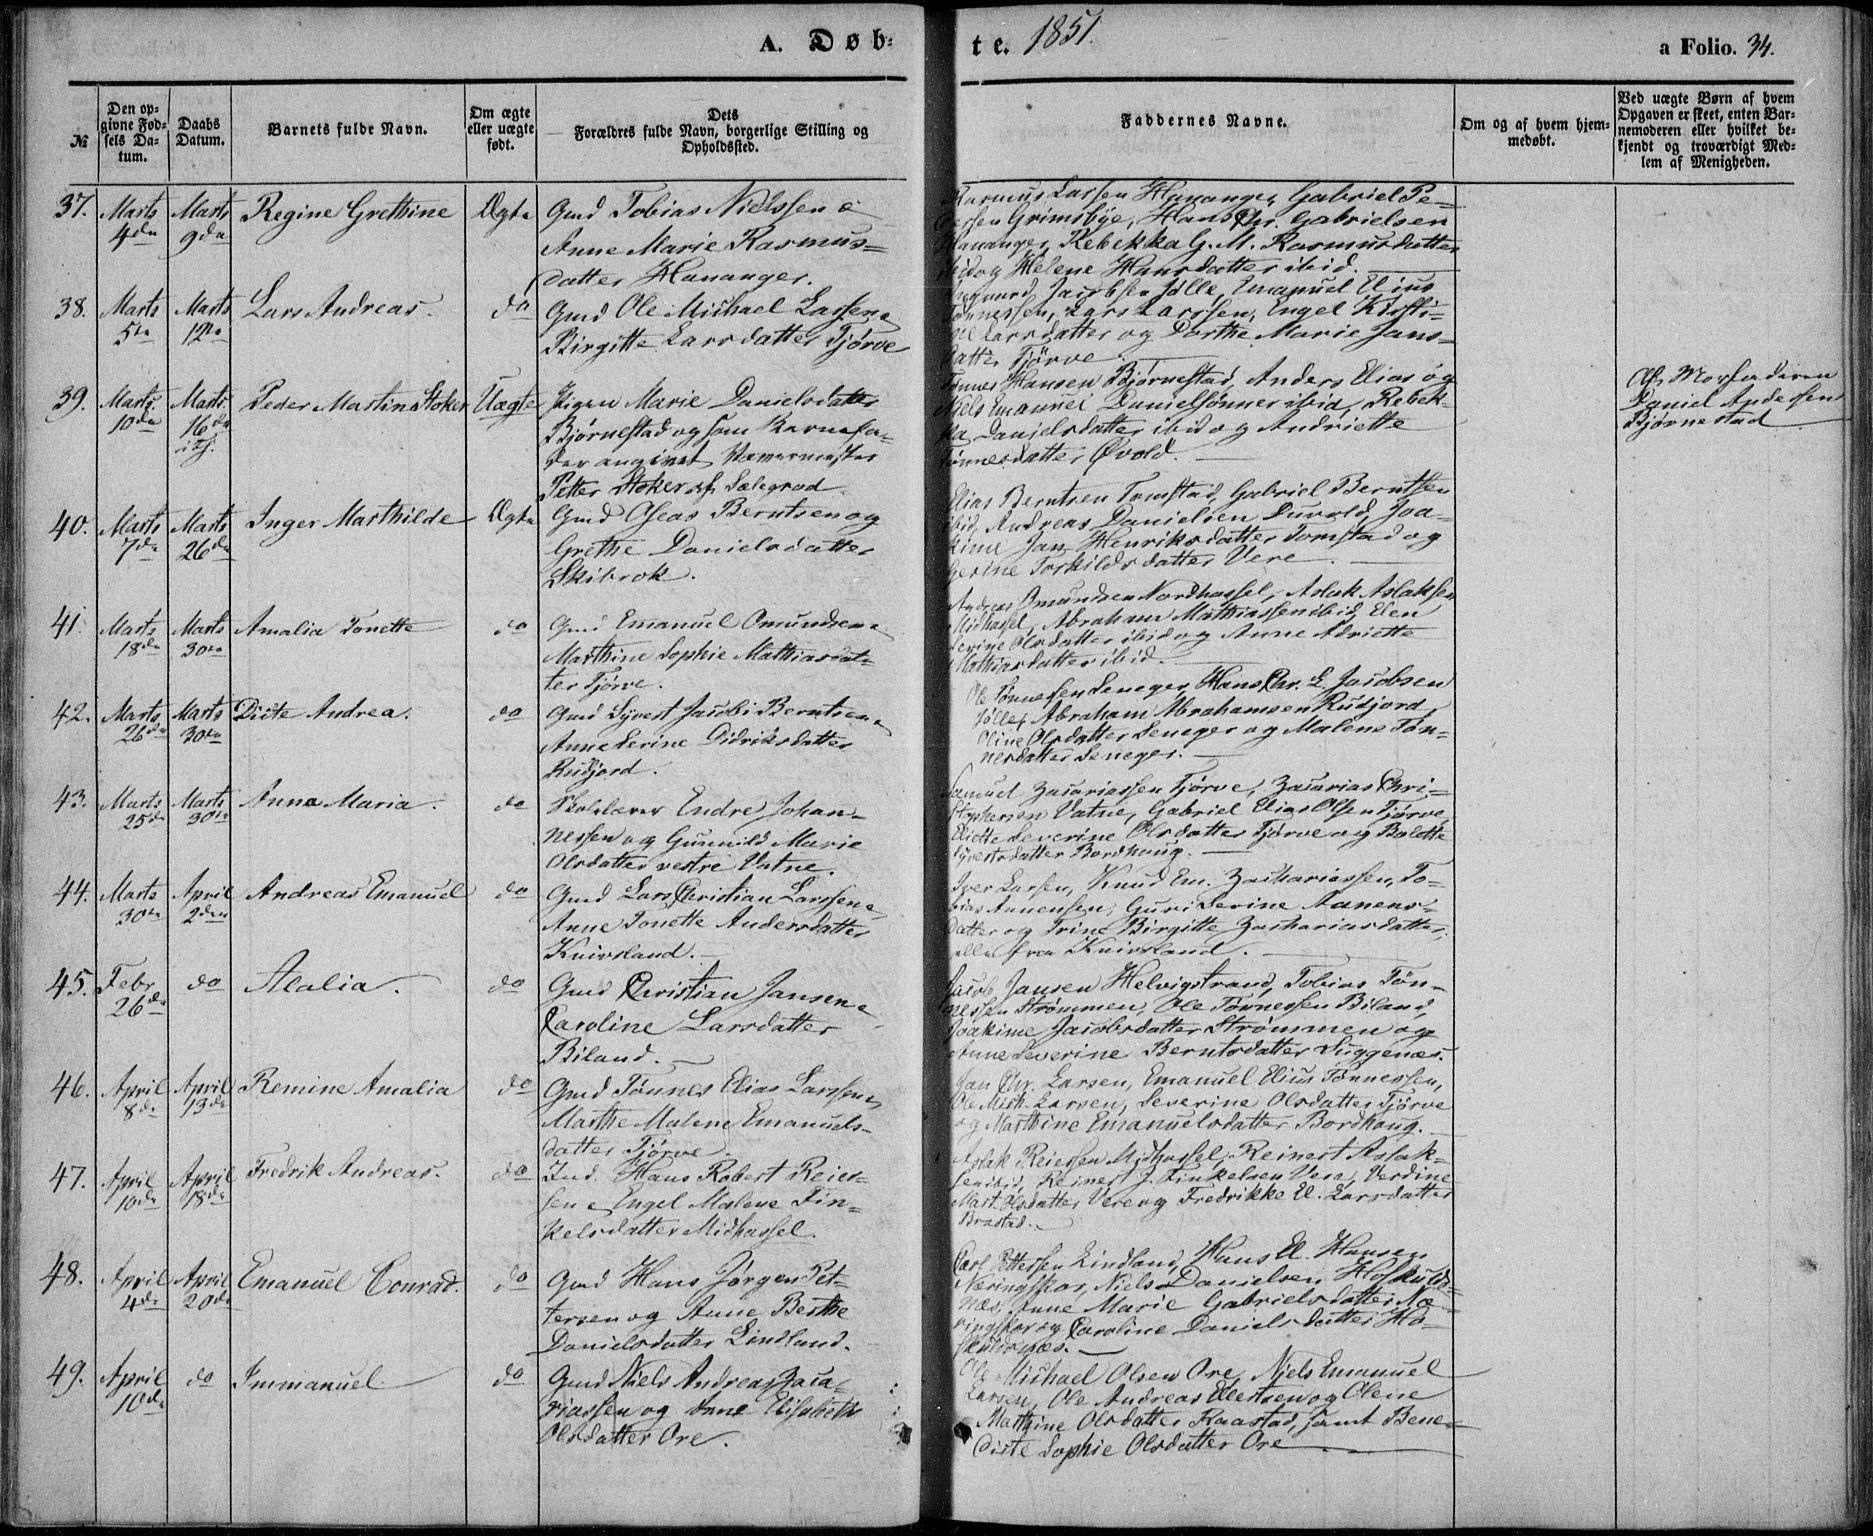 A. Døb-
te. 1851.
a Folio. 34.
№
Den op-
givne Fød-
sels Da-
tum.
Daabs
Datum.
Barnets fulde Navn.
Om ægte
eller uægte
født.
Dets
Forældres fulde Navn, borgerlige Stilling og
Opholdssted.
Faddernes Navne.
Om og af hvem hjem-
medøbt.
Ved uægte Børn af hvem
Opgaven er skeet, enten Bar-
nemoderen eller hvilket be-
kjendt og troværdigt Med-
lem af Menigheden.
37. Marts Marts Regine Grethine Ægte Gmd Tobias Nielssen &
4de 9de Anne Marie Rasmus-
datter Hananger.
Rasmus Larssen Hananger, Gabriel Pe-
dersen Grimsbye, Hans Chr. Gabrielsen
Hananger, Rebekka G. M. Rasmusdatter
ibid og Helene Hansdatter ibid.
38. Marts Marts Lars Andreas. do Gmd Ole Michael Larssen &
5te 12te Birgitte Larsdatter Tjørve
Jacobsen Jølle, Emanuel Elius
Tønnessen, Lars Larssen, Engel Kirsti-
ne Larsdatter og Dorthe Marie Jans-
datter Tjörve
39. Marts Marts Peder Martin Stoker Uægte Pigen Marie Danielsdatter
10de 16de Bjørnestad og som Barnefa-
i Kj. der angivet
Petter Stoker af Sælegrod.
Tønnes Hansen Bjørnestad, Anders Elias og
Niels Emanuel Danielsønner ibid, Rebek-
ka Danielsdatter ibid og Andriette
Tønnesdatter Øvold.
Af Morfaderen
Daniel Andersen
Bjørnestad
40. Marts Marts Inger Marthilde Ægte Gmd Oseas Berntsen og
7de 26de Grethe Danielsdatter
Skibrok.
Elias Berntsen Tomstad, Gabriel Berntsen
ibid, Andreas Danielsen Duvold, Joa-
kime Jan Henriksdatter Tomstad og
Gerine Torkildsdatter Vere.
41. Marts Marts Amalia Tonette do Gmd Emanuel Omundsen &
18de 30te Marthine Sophie Mathiasdat-
ter Tjörve.
Andreas Omundsen Nordhassel, Aslak Aslaksen
Midhassel, Abraham Mathiassen ibid, Elen
Serine Olsdatter ibid og Anne Adriette
Mathiasdatter ibid.
42. Marts Marts Dicte Andrea. do Gmd Syvert Jacobi Berntsen &
26de 30te Anne Serine Didriksdatter
Rudjord.
Ole Tønnesen Seneger, Hans Chr. E. Jacobsen
Jölle, Abraham Abrahamsen Rudjord,
Oline Olsdatter Seneger og Malene Tøn-
nesdatter Seneger.
43. Marts Marts Anna Maria. do Skolelærer Endre Johan-
25de 30te nessen og Gunnild Marie
Olsdatter vestre Vatne.
Samuel Zacariassen Tjörve, Zacarias Chri-
stophersen Vatne, Gabriel Elias Olsen Tjörve,
Eliette Severine Olsdatter Tjörve og Bolette
Syvertsdatter Bordhoug.
44. Marts April Andreas Emanuel do Gmd Lars Christian Larssen &
30te 2den Anne Tonette Andersdatter
Knivsland.
Iver Larsen, Knud Em. Zachariassen, To-
bias Aanensen, Guri Serine Aanens-
datter og Trine Birgitte Zachariasdatter,
alle fra Knivsland.
45. Febr. do Alalia. do Gmd Christian Jansen &
26de Caroline Larsdatter
Biland.
Jacob Jansen Helvigstrand, Tobias Tön-
nessen Strømmen, Ole Tønnessen Biland,
Joakime Jacobsdatter Strømmen og
Anne Severine Berntsdatter Snggenæs.
46. April April Remine Amalia do Gmd Tønnes Elias Larssen &
8de 13de Marthe Malene Emanuels-
datter Tjörve.
Jan Chr. Larsen, Emanuel Elius Tønnessen,
Ole Mich. Larsen, Severine Olsdatter Tjörve
og Marthine Emanuelsdatter Bordhoug.
47. April April Fredrik Andreas. do Ind. Hans Robert Reier-
10de 18de sen & Engel Malene Fin-
kelsdatter Midhassel.
Aslak Reiersen Midhassel, Reinert Aslak-
sen ibid, Reinert J. Finkelsen Vere, Verdine
Mart. Olsdatter Vere og Fredrikke El. Larsdatter
Brastad.
48. April April Emanuel Conrad. do Gmd Hans Jørgen Pet-
4de 20de tersen og Anne Berthe
Danielsdatter Lindland.
Carl Pettersen Lindland, Hans El. Hansen
Næringskar, Niels Danielsen Hoskulds-
næs, Anne Marie Gabrielsdatter Næ-
ringskar og Caroline Danielsdatter Ho-
skuldsnæs.
49. April do Immanuel do Gmd Niels Andreas Zaca-
10de riassen og Anne Elisabeth
Olsdatter Ore.
Ole Michael Olsen Ore, Niels Emanuel
Larsen, Ole Andreas Eilertsen og Olene
Marthine Olsdatter Raastad, samt Bene-
dicte Sophie Olsdatter Ore